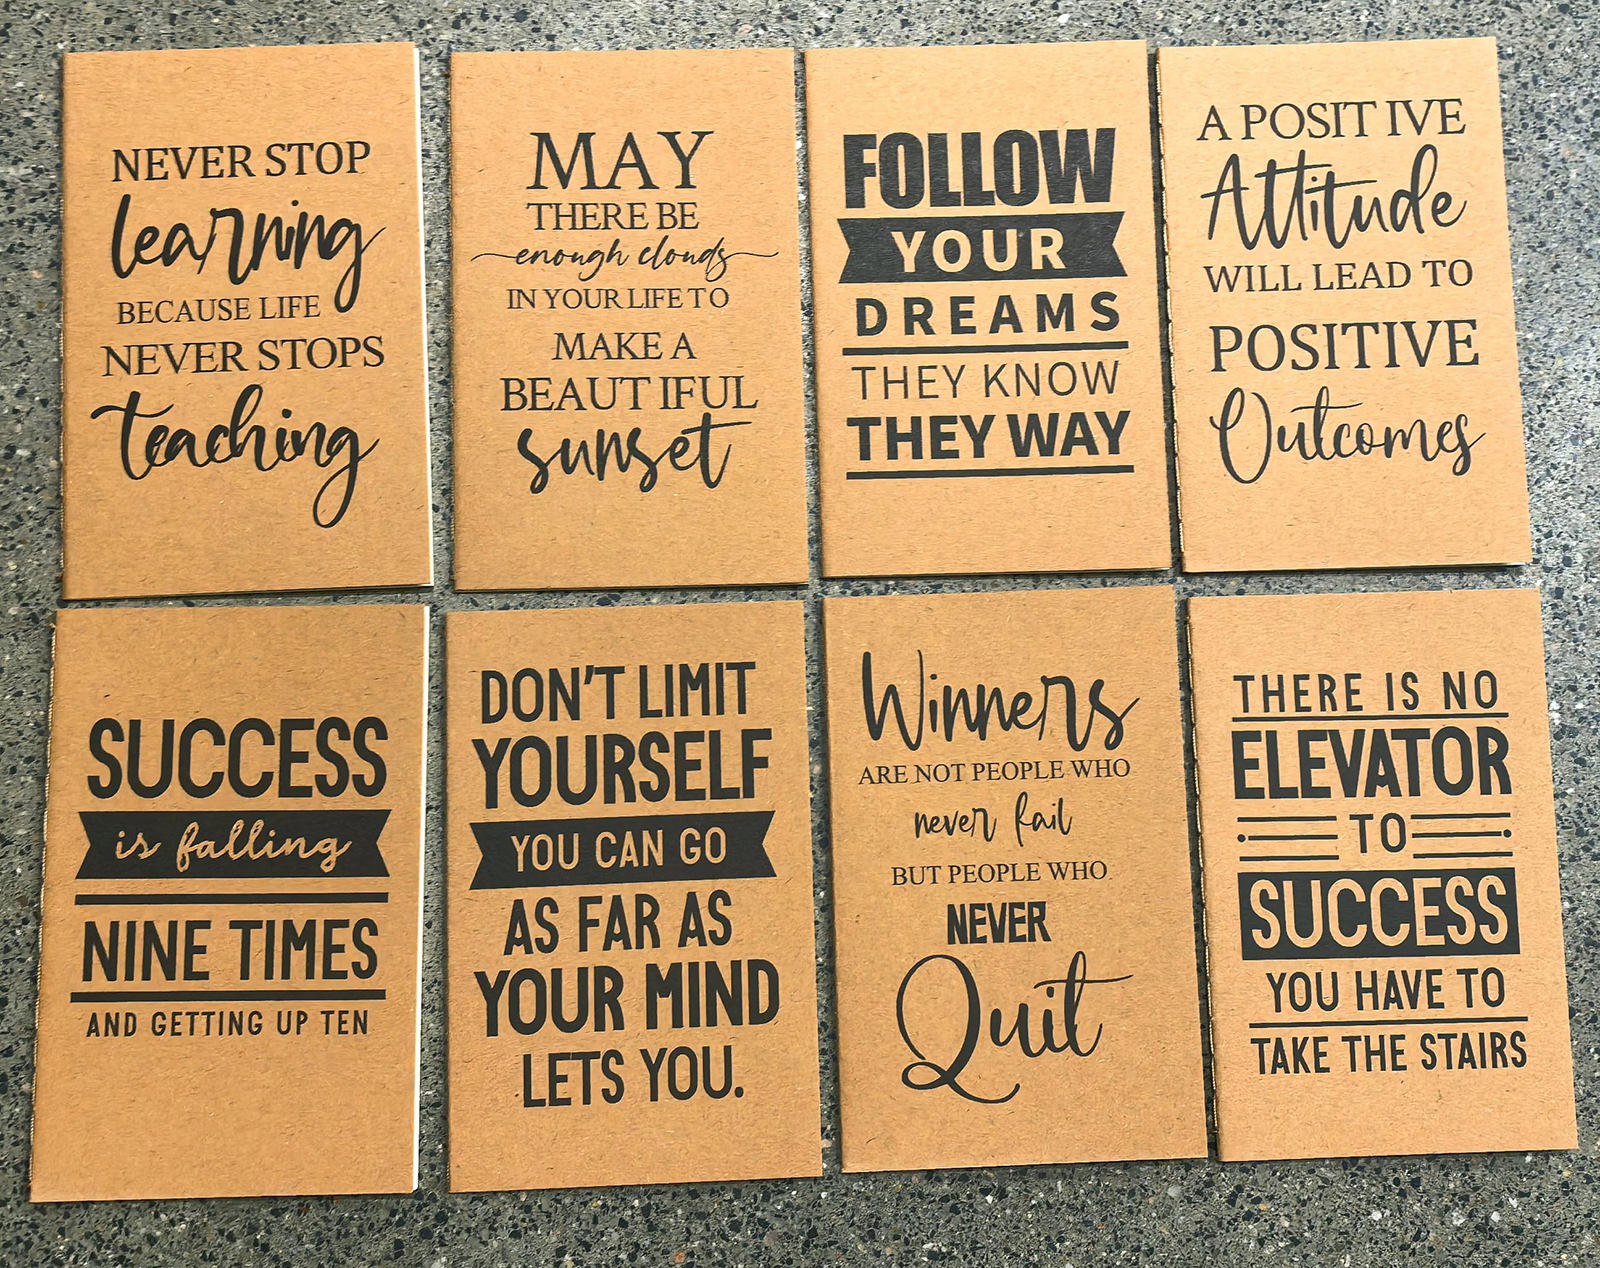 NEVER STOP
learning
BECAUSE LIFE
NEVER STOPS
teaching
MAY
THERE BE
enough clouds
IN YOUR LIFE TO
MAKE A
BEAUT IFUL
sunset
FOLLOW
YOUR
DREAMS
THEY KNOW
THEY WAY
A POSIT IVE
Attitude
WILL LEAD TO
POSITIVE
Outcomes
SUCCESS
is falling
NINE TIMES
AND GETTING UP TEN
DON'T LIMIT
YOURSELF
YOU CAN GO
AS FAR AS
YOUR MIND
LETS YOU.
Winners
ARE NOT PEOPLE WHO
never fail
BUT PEOPLE WHO
NEVER
Quit
THERE IS NO
ELEVATOR
TO
SUCCESS
YOU HAVE TO
TAKE THE STAIRS